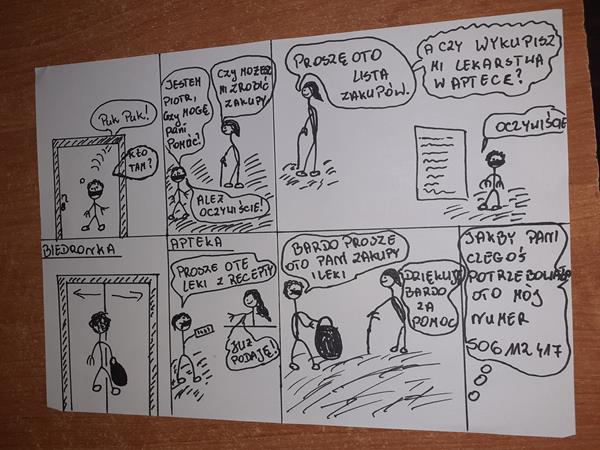 PUK PUK!
KTO
TAM?
JESTEM
PIOTR,
CZY MOGĘ
PANI
POMÓC?
CZY MOŻESZ
MI ZROBIĆ
ZAKUPY
ALEŻ
OCZYWIŚCIE!
PROSZĘ OTO
LISTA
ZAKUPÓW.
A CZY WYKUPISZ
MI LEKARSTWA
W APTECE?
OCZYWIŚCIE
BIEDRONKA
APTEKA
PROSZE OTE
LEKI Z RECEPTY
JUŻ
PODAJĘ!
BARDO PROSZE
OTO PANI ZAKUPY
I LEKI
DZIĘKUJE
BARDO
ZA
POMOC
JAKBY PANI
CZEGOŚ
POTRZEBOWAŁA
OTO MÓJ
NUMER
506 112 417